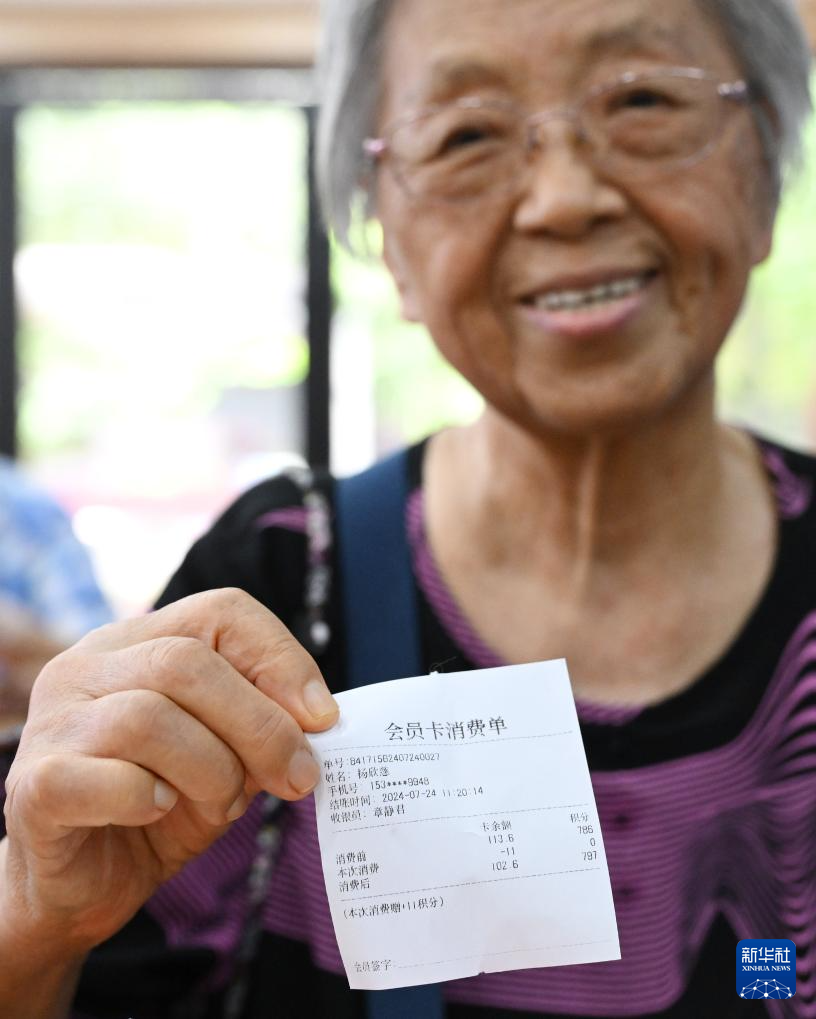 会员卡消费单
单号:84171562407240027
姓名: 杨欣慈
手机号: 153****9948
结账时间: 2024-07-24 11:20:14
收银员: 章静君
卡余额 积分
消费前 113.6 786
本次消费 -11 0
消费后 102.6 797
(本次消费赠+11积分)
会员签字:
新华社
XINHUA NEWS